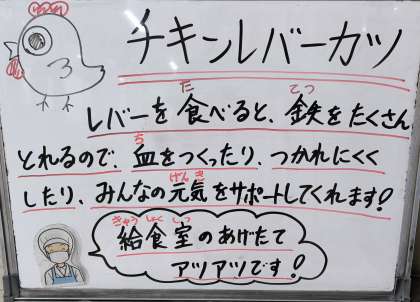 チキンレバーカツ
3
レバーを食べると、鉄をたくさん
とれるので、血をつくったり、つかれにくく
したり、みんなの元気をサポートしてくれます!
給食室のあげたて
アツアツです!
た
てつ
ち
げんき
きゅうしょくしつ